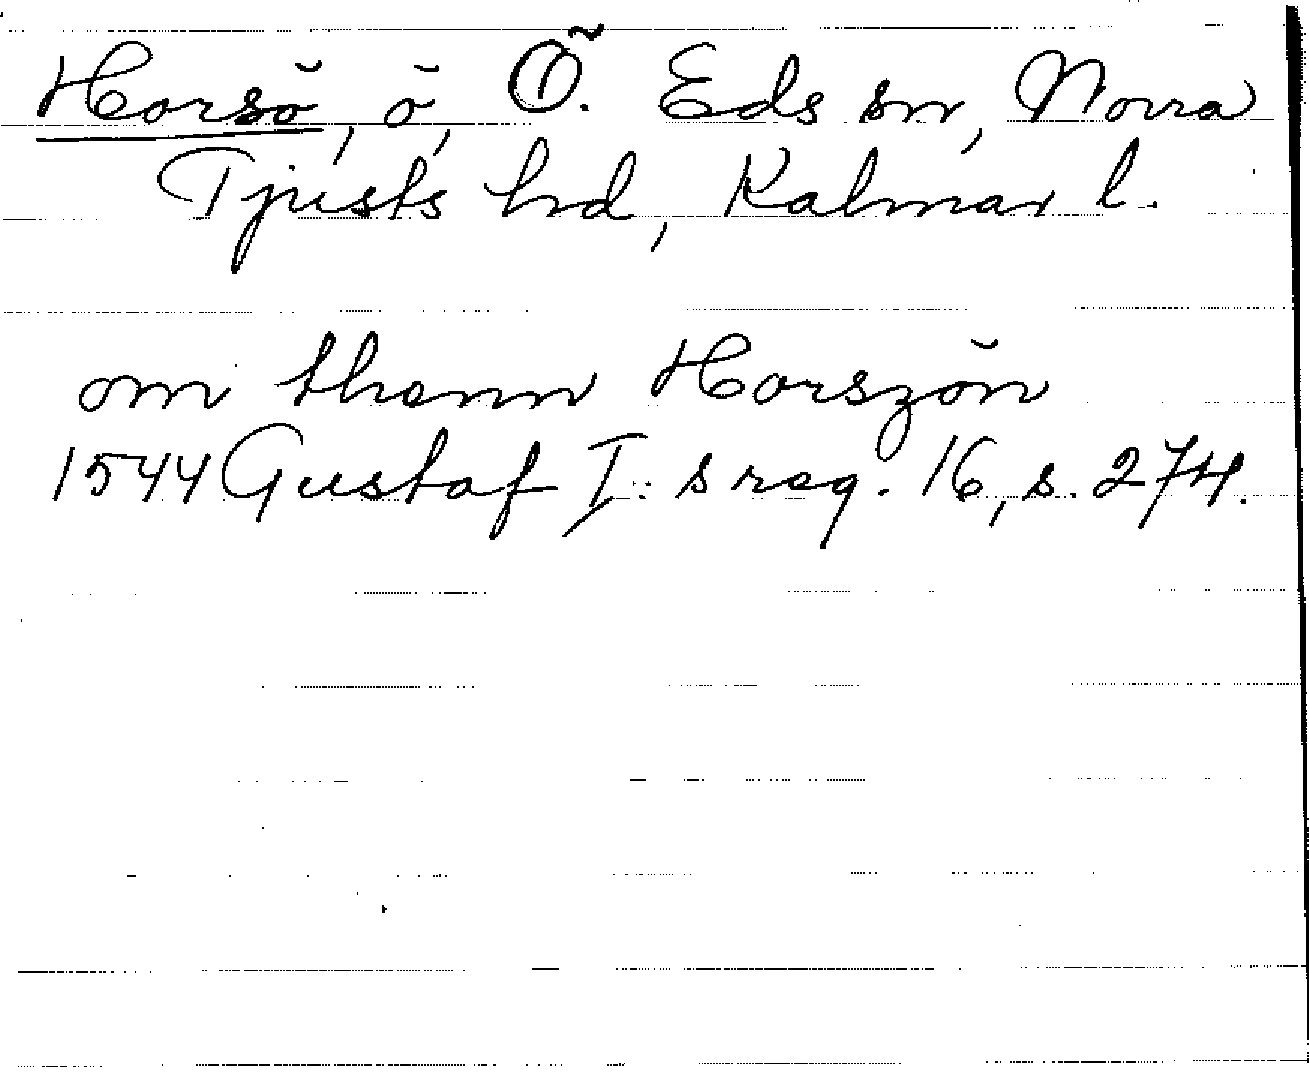 Horsö, ö, Ö. Eds sn, Norra
Tjusts hd, Kalmar l.
om thenn Horszön
1544 Gustaf I: s reg. 16, s. 274.